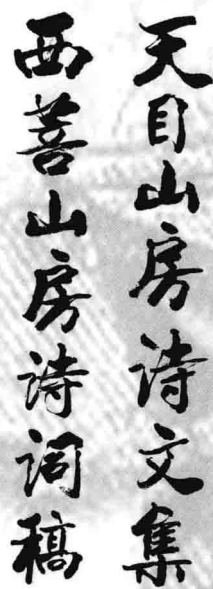 天目山房诗文集
西菩山房诗词稿